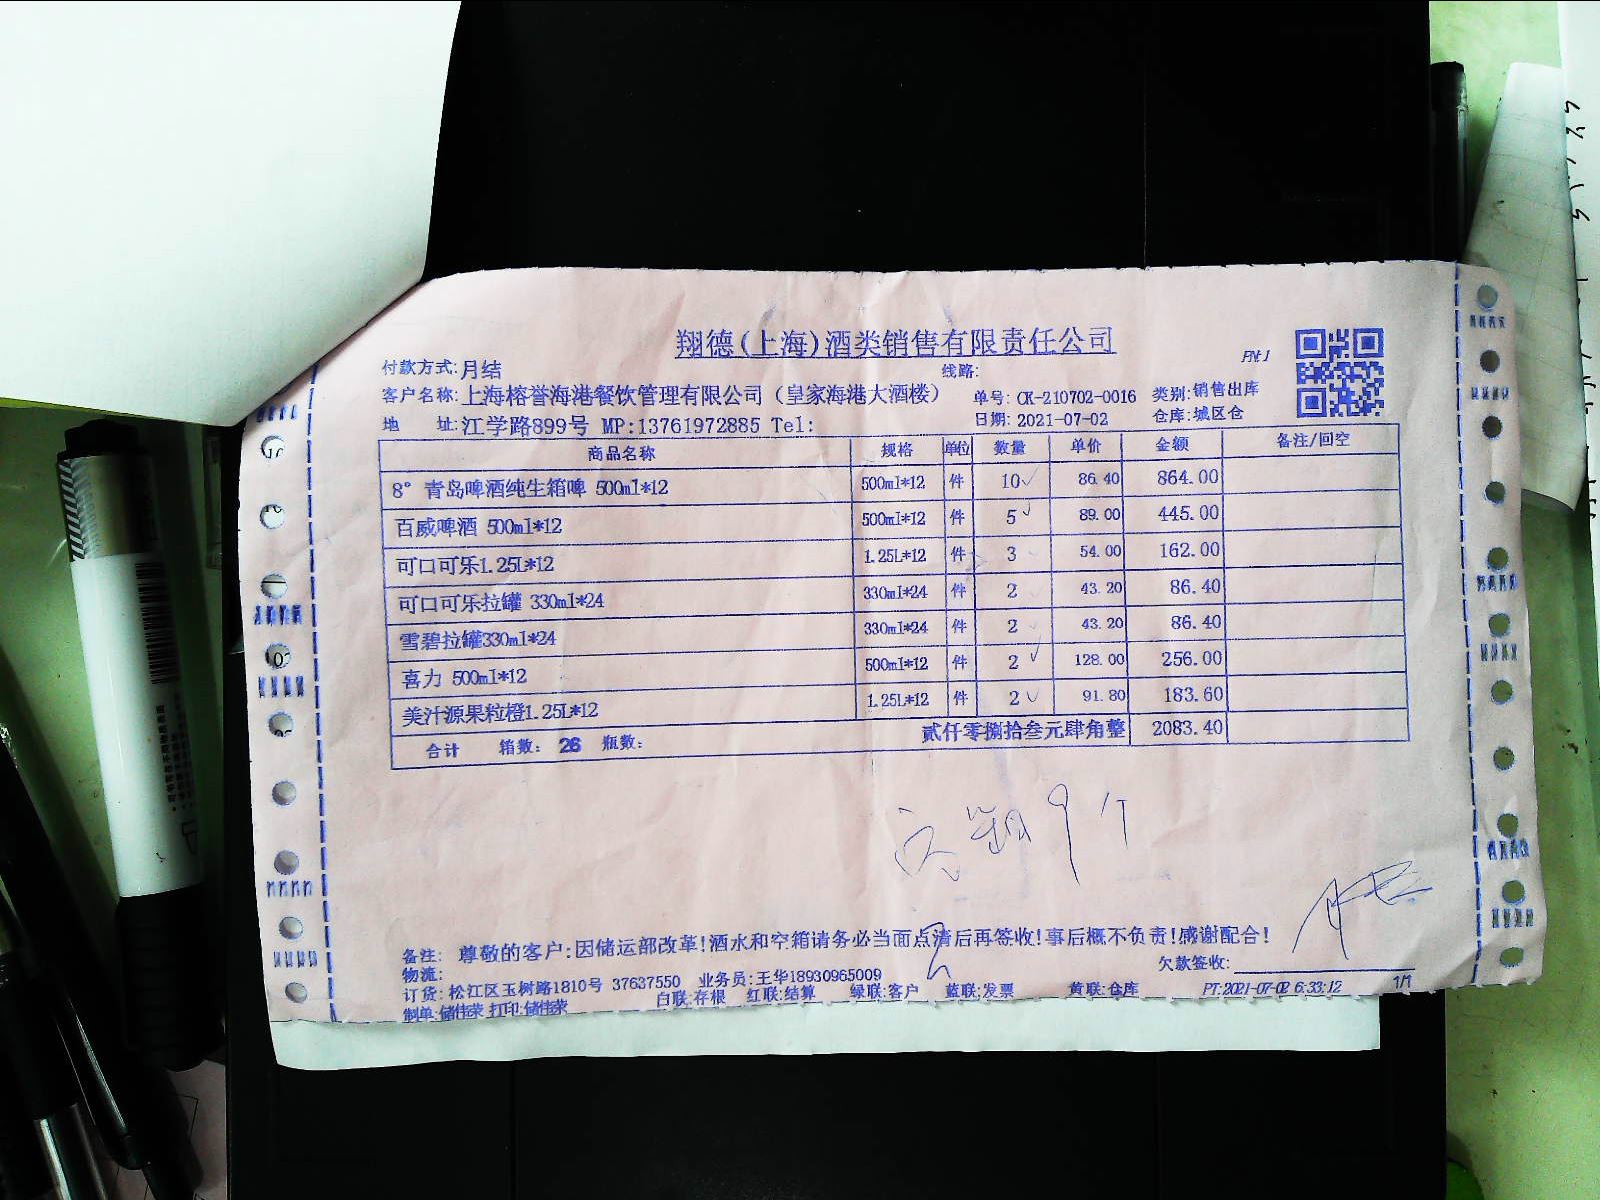 翔德(上海)酒类销售有限责任公司
付款方式:月结 线路:
客户名称:上海榕誉海港餐饮管理有限公司（皇家海港大酒楼） 单号: CK-210702-0016 类别:销售出库
地 址:江学路899号 MP:13761972885 Tel: 日期: 2021-07-02 仓库:城区仓
商品名称 规格 单位 数量 单价 金额 备注/回空
8° 青岛啤酒纯生箱啤 500ml*12 500ml*12 件 10 86.40 864.00
百威啤酒 500ml*12 500ml*12 件 5 89.00 445.00
可口可乐1.25L*12 1.25L*12 件 3 54.00 162.00
可口可乐拉罐 330ml*24 330ml*24 件 2 43.20 86.40
雪碧拉罐330ml*24 330ml*24 件 2 43.20 86.40
喜力 500ml*12 500ml*12 件 2 128.00 256.00
美汁源果粒橙1.25L*12 1.25L*12 件 2 91.80 183.60
合计 箱数: 26 瓶数: 贰仟零捌拾叁元肆角整 2083.40
备注: 尊敬的客户:因储运部改革!酒水和空箱请务必当面点清后再签收!事后概不负责!感谢配合!
物流: 欠款签收:
订货:松江区玉树路1810号 37637550 业务员:王华18930965009
白联:存根 红联:结算 绿联:客户 蓝联:发票 黄联:仓库 PT:2021-07-02 6:33:12 1/1
制单:储伟荣 打印:储伟荣